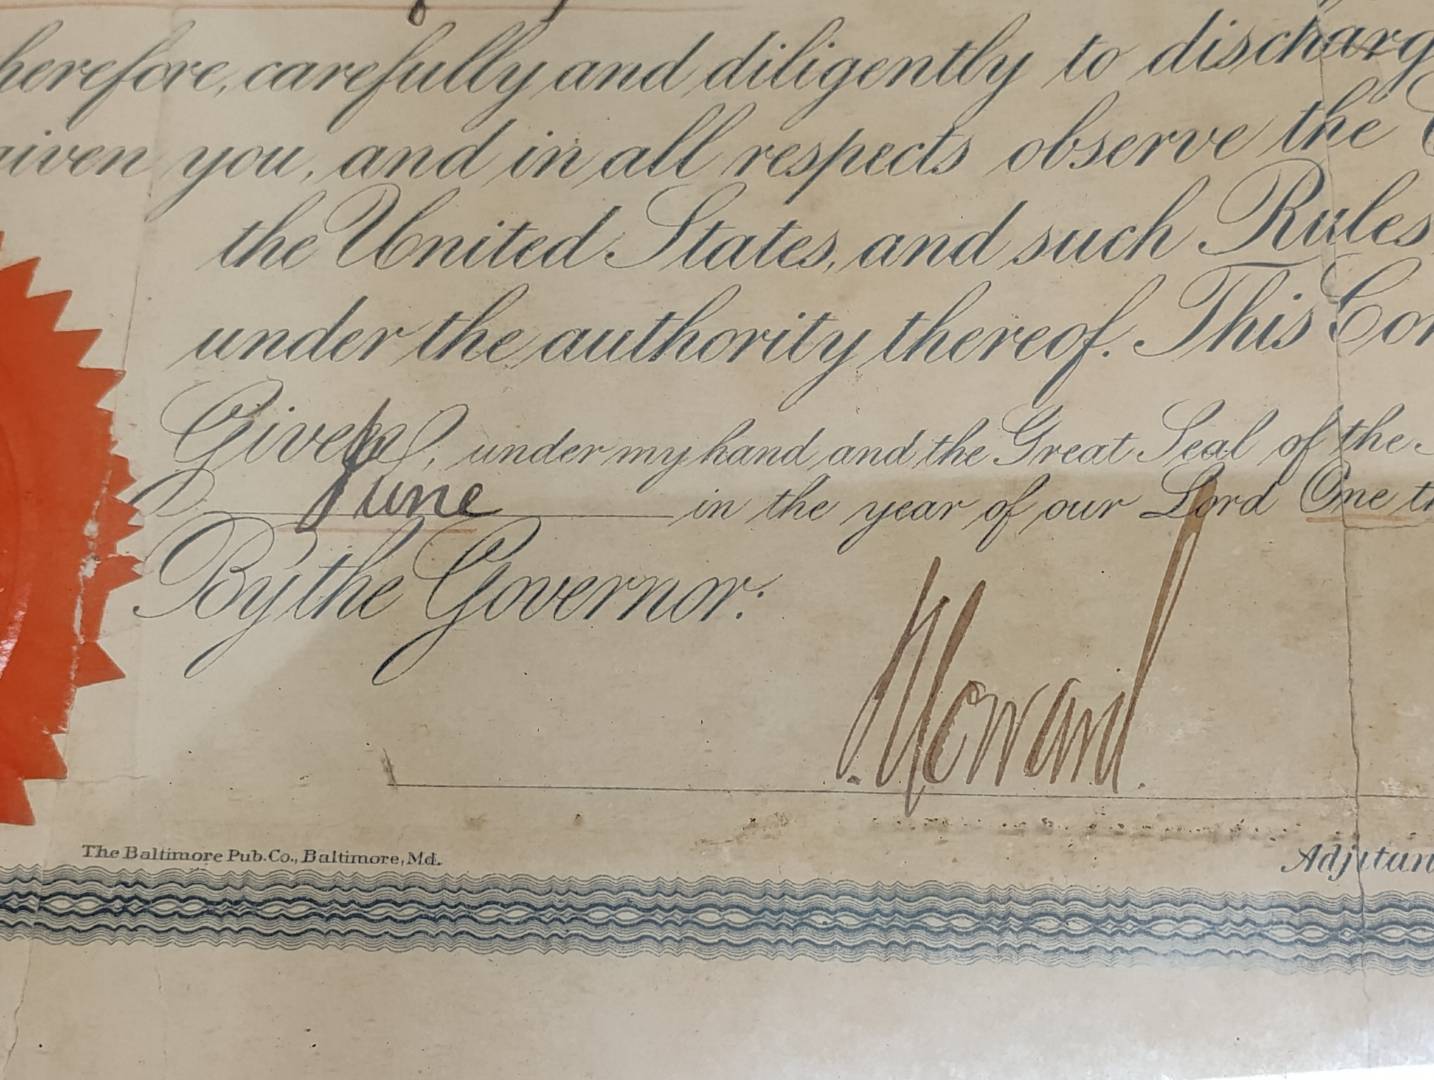 herefore, carefully and diligently to discharg
given you, and in all respects observe the
the United States, and such Rules
under the authority thereof. This Co
Given, under my hand and the Great Seal of the
June in the year of our Lord One th
By the Governor:
Howard
The Baltimore Pub. Co., Baltimore, Md.
Adjutan